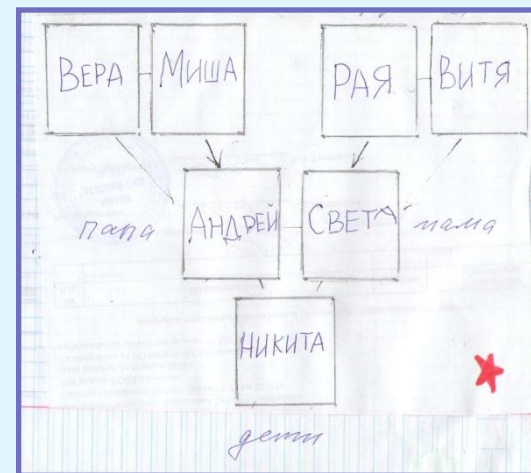 ВЕРА МИША РАЯ ВИТЯ
папа АНДРЕЙ СВЕТА мама
НИКИТА
дети